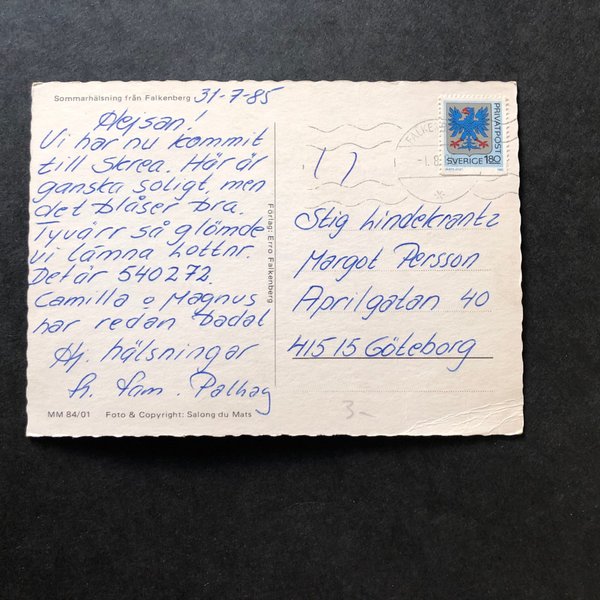 Sommarhälsning från Falkenberg 31-7-85
Hejsan!
Vi har nu kommit
till Skrea. Här är
ganska soligt, men
det blåser bra.
Tyvärr så glömde
vi lämna Lottnr.
Det är 540272.
Camilla o Magnus
har redan badat
Hj. hälsningar
fr. fam. Palhag
MM 84/01 Foto & Copyright: Salong du Mats
Förlag: Erro Falkenberg
PRIVATPOST
SVERIGE 180
Stig Lindekrantz
Margot Persson
Aprilgatan 40
415 15 Göteborg
3-